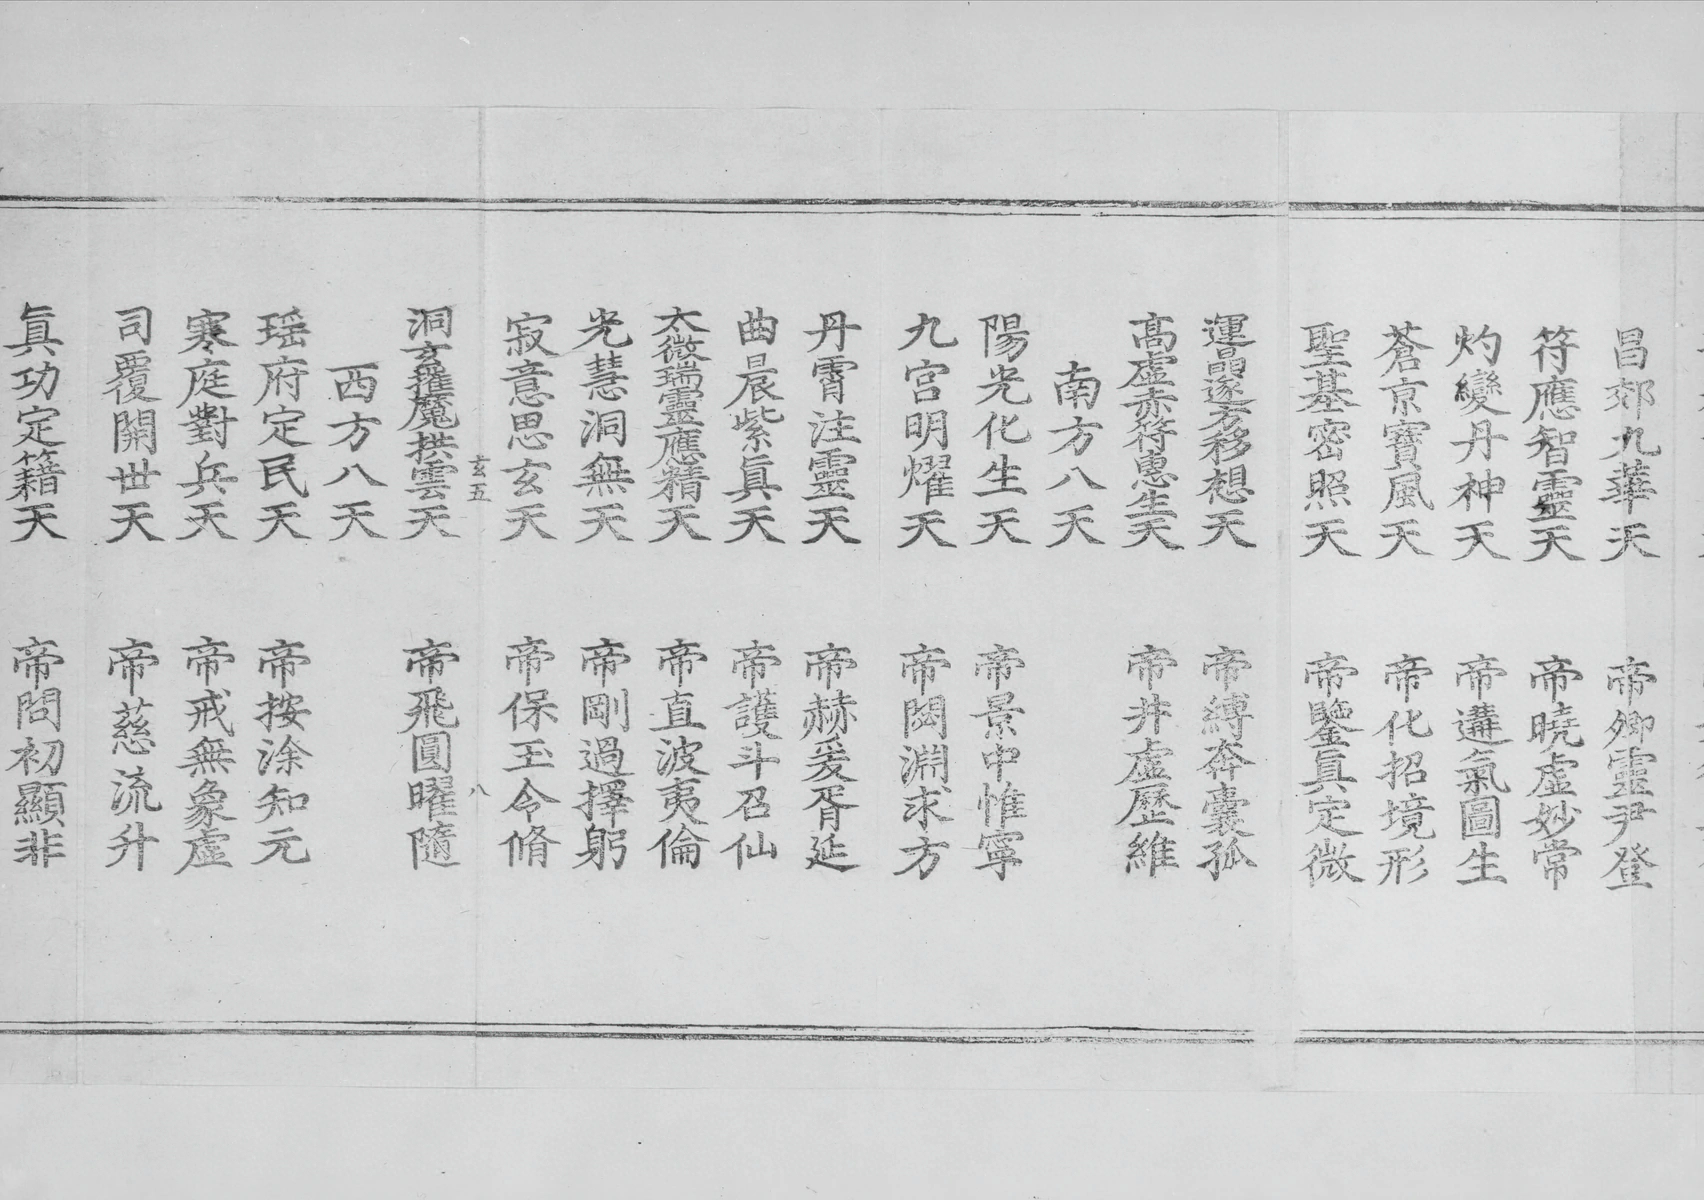 昌郊九華天　帝卿靈尹登
符應智靈天　帝曉虛妙常
灼變丹神天　帝遘氣圖生
蒼京寶風天　帝化招境形
聖基密照天　帝鑒眞定微
運晶逐方移想天　帝縛奔囊孤
髙虛赤符惠生天　帝井虛歷維
南方八天
陽光化生天　帝景中惟寧
九宮明耀天　帝閎淵求方
丹霄注靈天　帝赫爰胥延
曲晨紫眞天　帝護斗召仙
太微瑞靈應精天　帝直波夷倫
光慧洞無天　帝剛過擇躬
寂意思玄天　帝保玉令脩
玄五　八
洞玄攝魔拱雲天　帝飛圓曜隨
西方八天
瑶府定民天　帝按涂知元
寒庭對兵天　帝戒無象虛
司覆開世天　帝慈流升
眞功定籍天　帝問初顯非